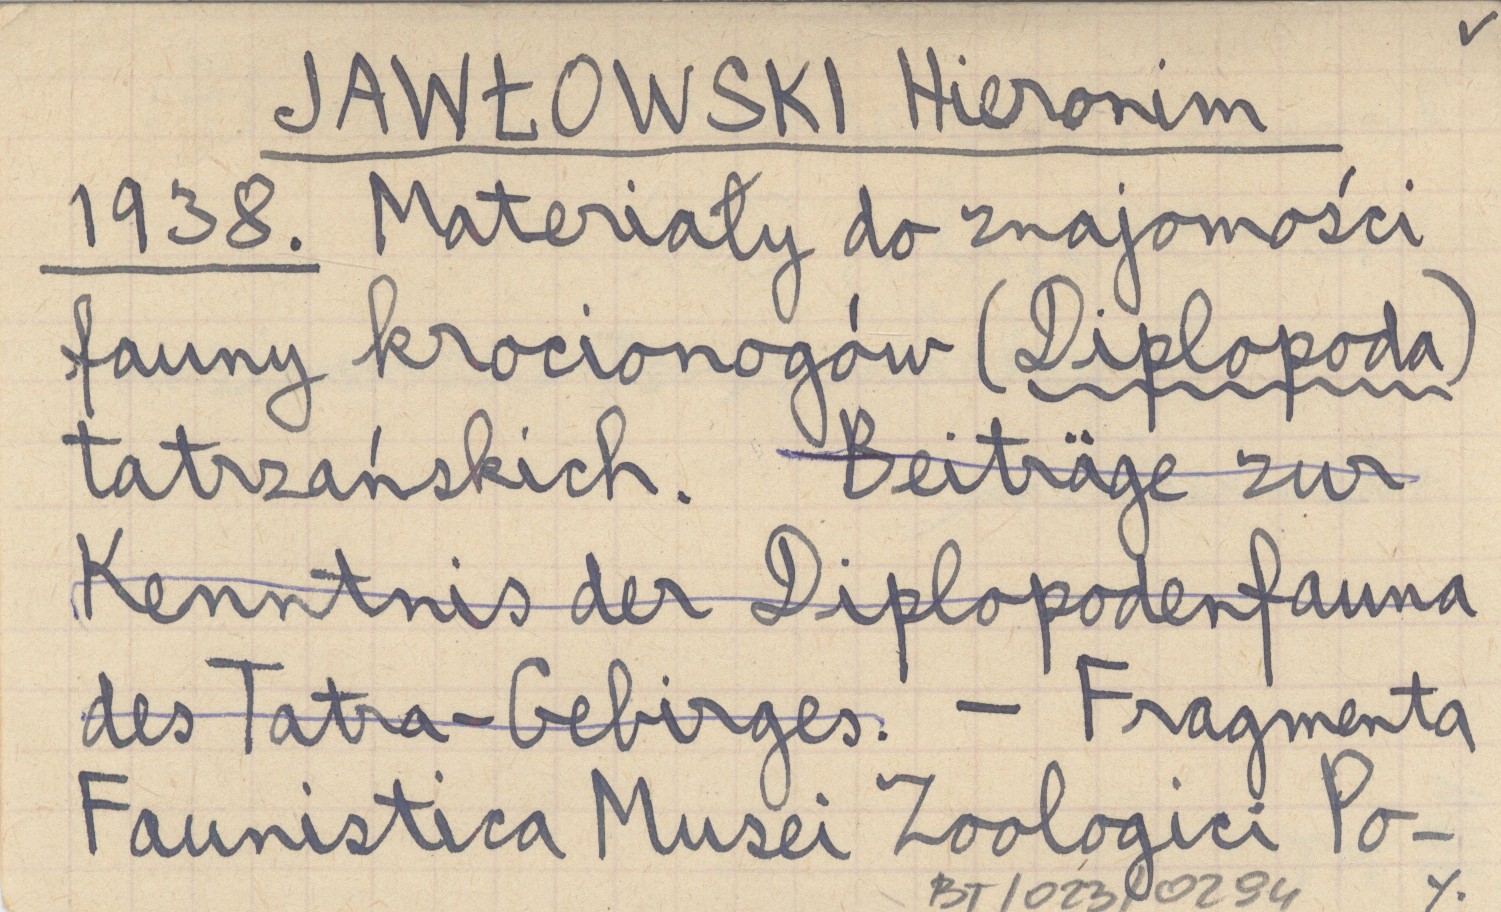 JAWŁOWSKI Hieronim
1938. Materiały do znajomości
fauny krocionogów (Diplopoda)
tatrzańskich. Beiträge zur
Kenntnis der Diplopodenfauna
des Tatra-Gebirges. — Fragmenta
Faunistica Musei Zoologici Po-
BT/023/0294 y.